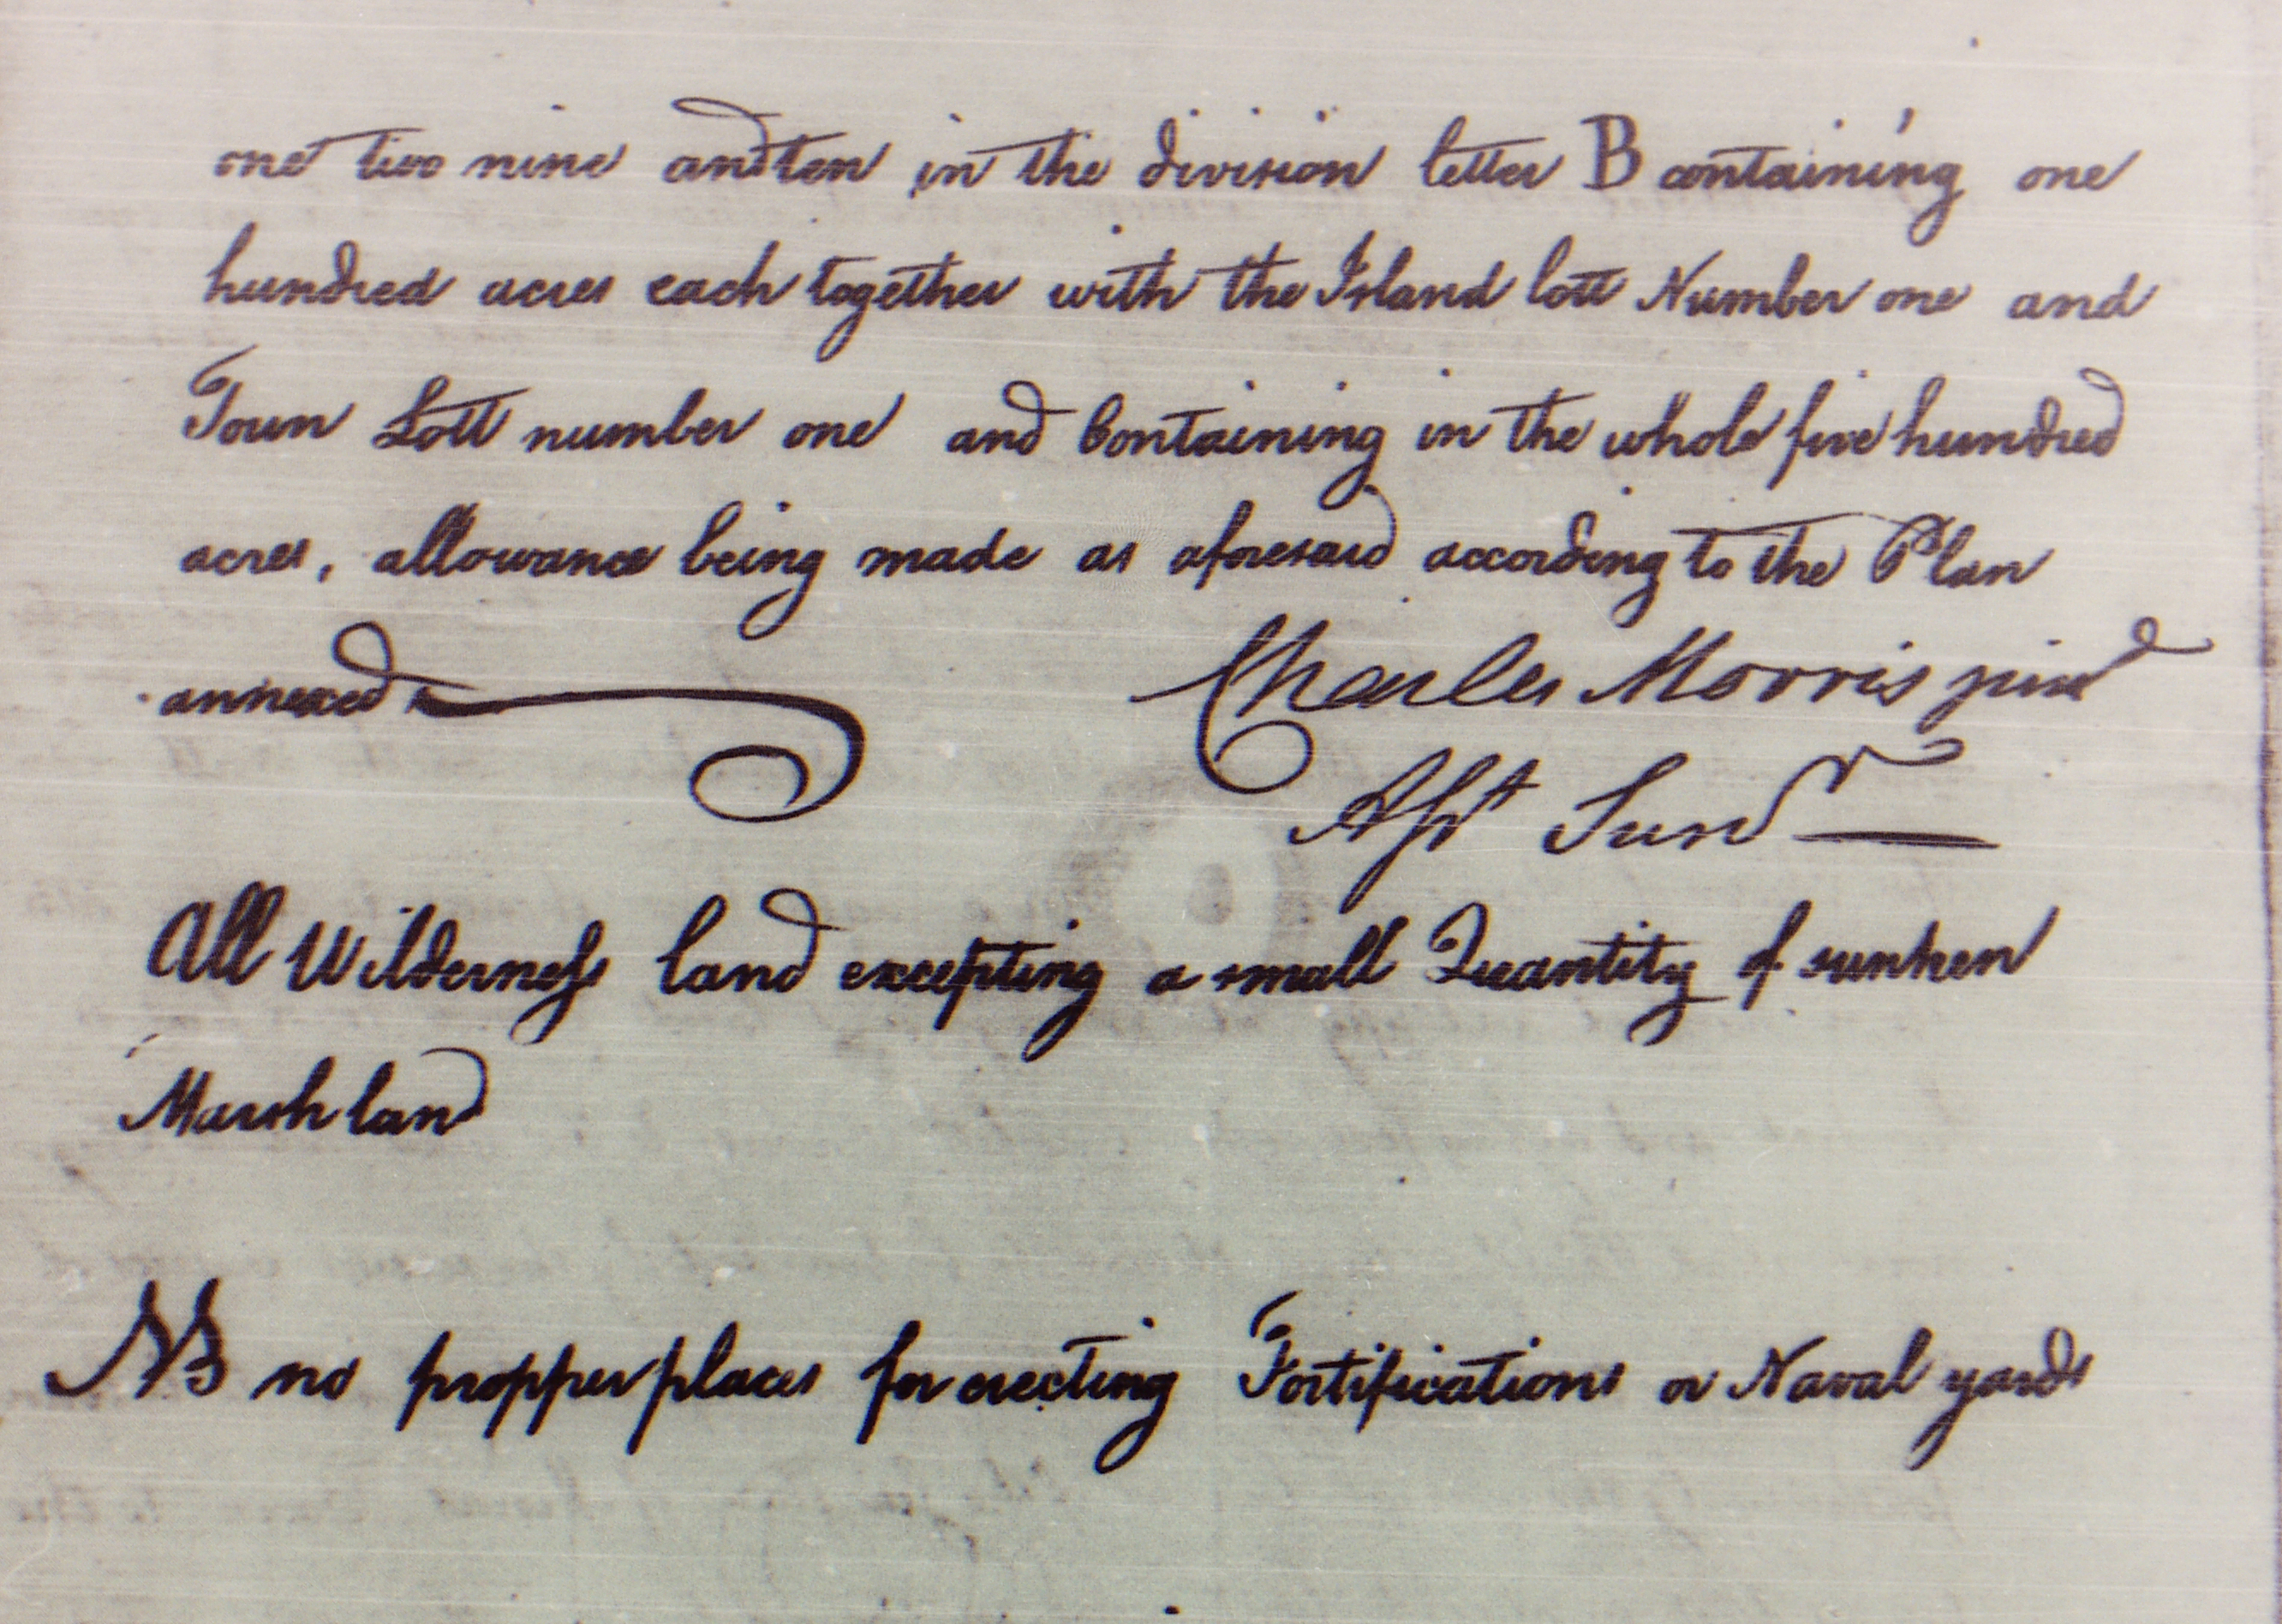 one two nine and ten in the division letter B containing one
hundred acres each together with the Island lott Number one and
Town Lott number one and Containing in the whole five hundred
acres, allowance being made as aforesaid according to the Plan
annexed
Charles Morris junr
Asst Survr
All Wilderness land excepting a small Quantity of sunken
Marsh land
NB no propper places for erecting Fortifications or Naval yards